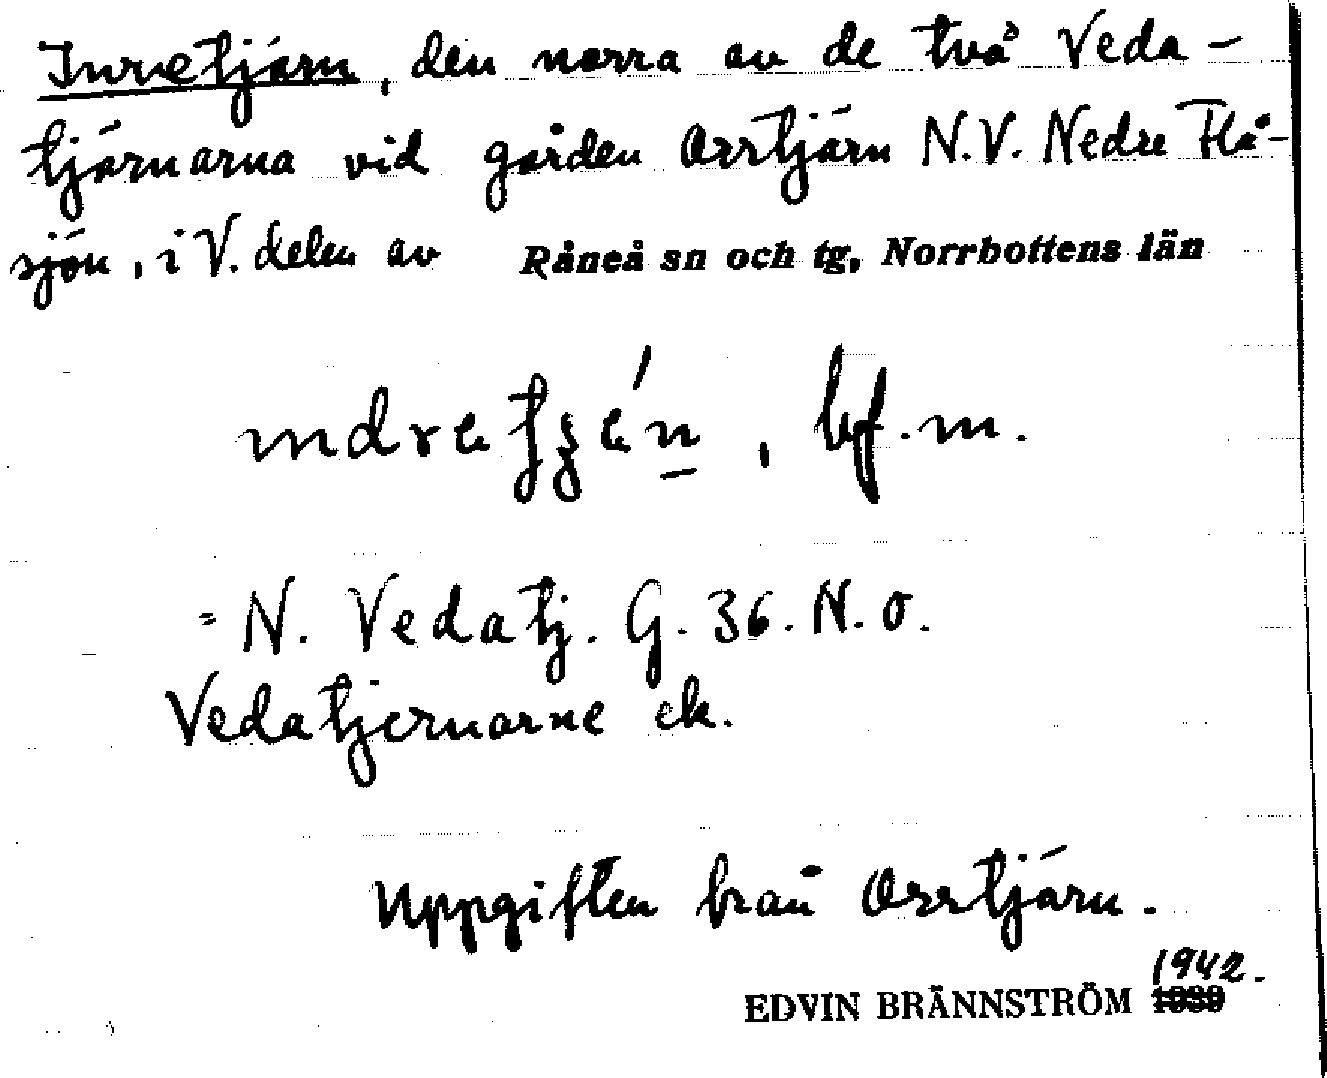 Inretjärn, den norra av de två Veda-
tjärnarna vid gården Orrtjärn N.V. Nedre Flå-
sjön, i V. delen av Råneå sn och tg, Norrbottens län
bf. m.
= N. Vedatj. G. 36. N.O.
Vedatjernarne ek.
Uppgiften från Orrtjärn.
1942.
EDVIN BRÄNNSTRÖM 1939